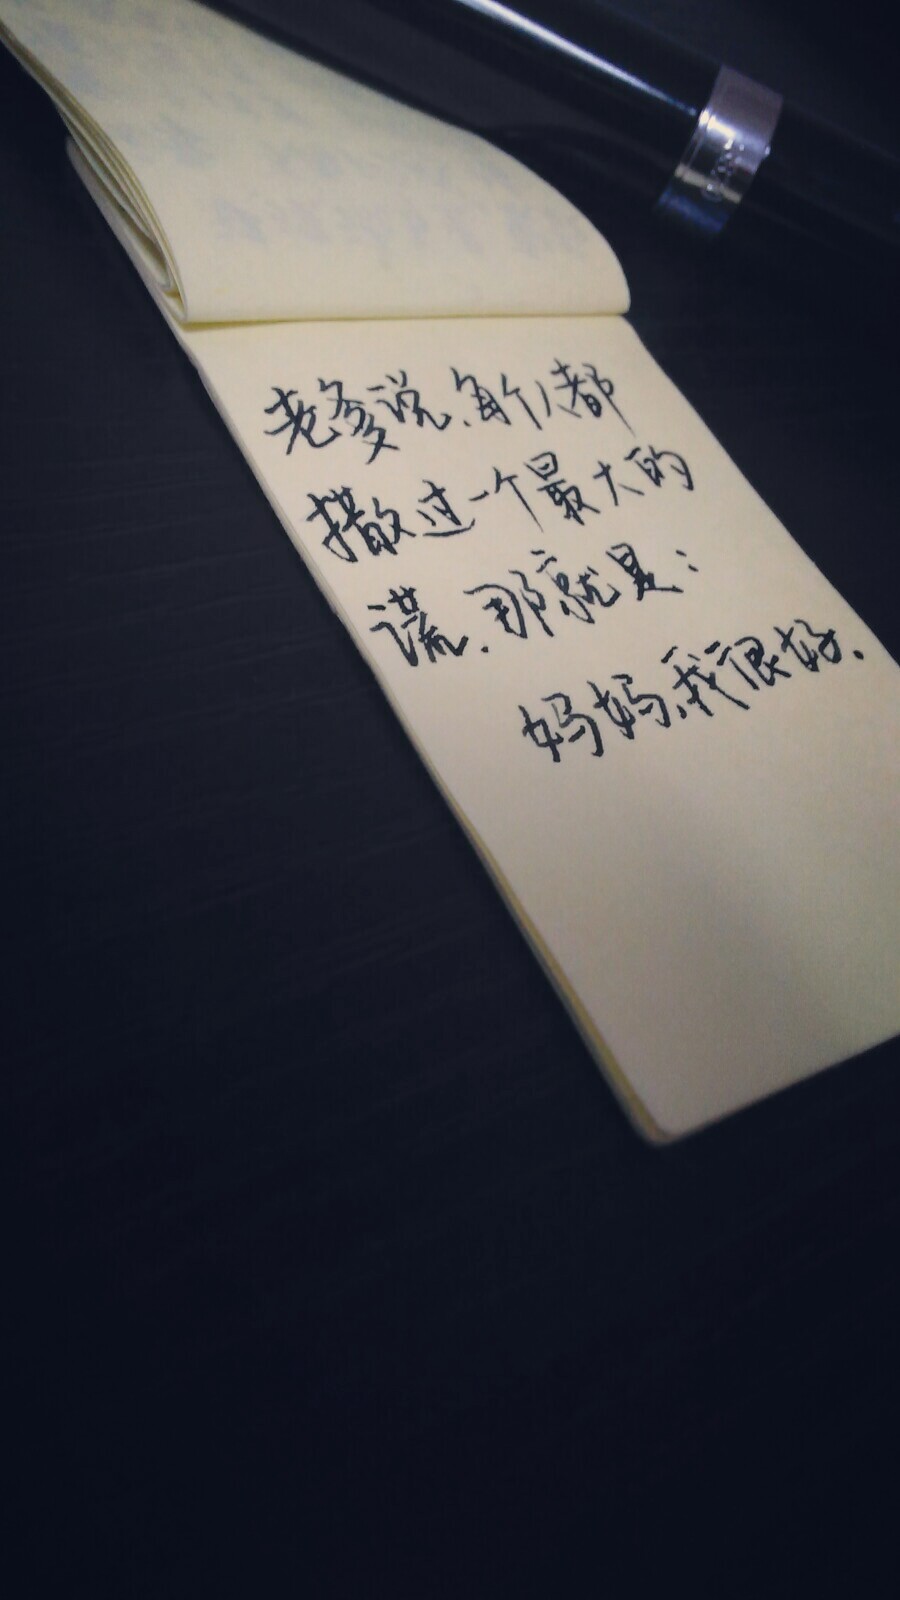 老爹说、每个人都
撒过一个最大的
谎、那就是：
妈妈，我很好.